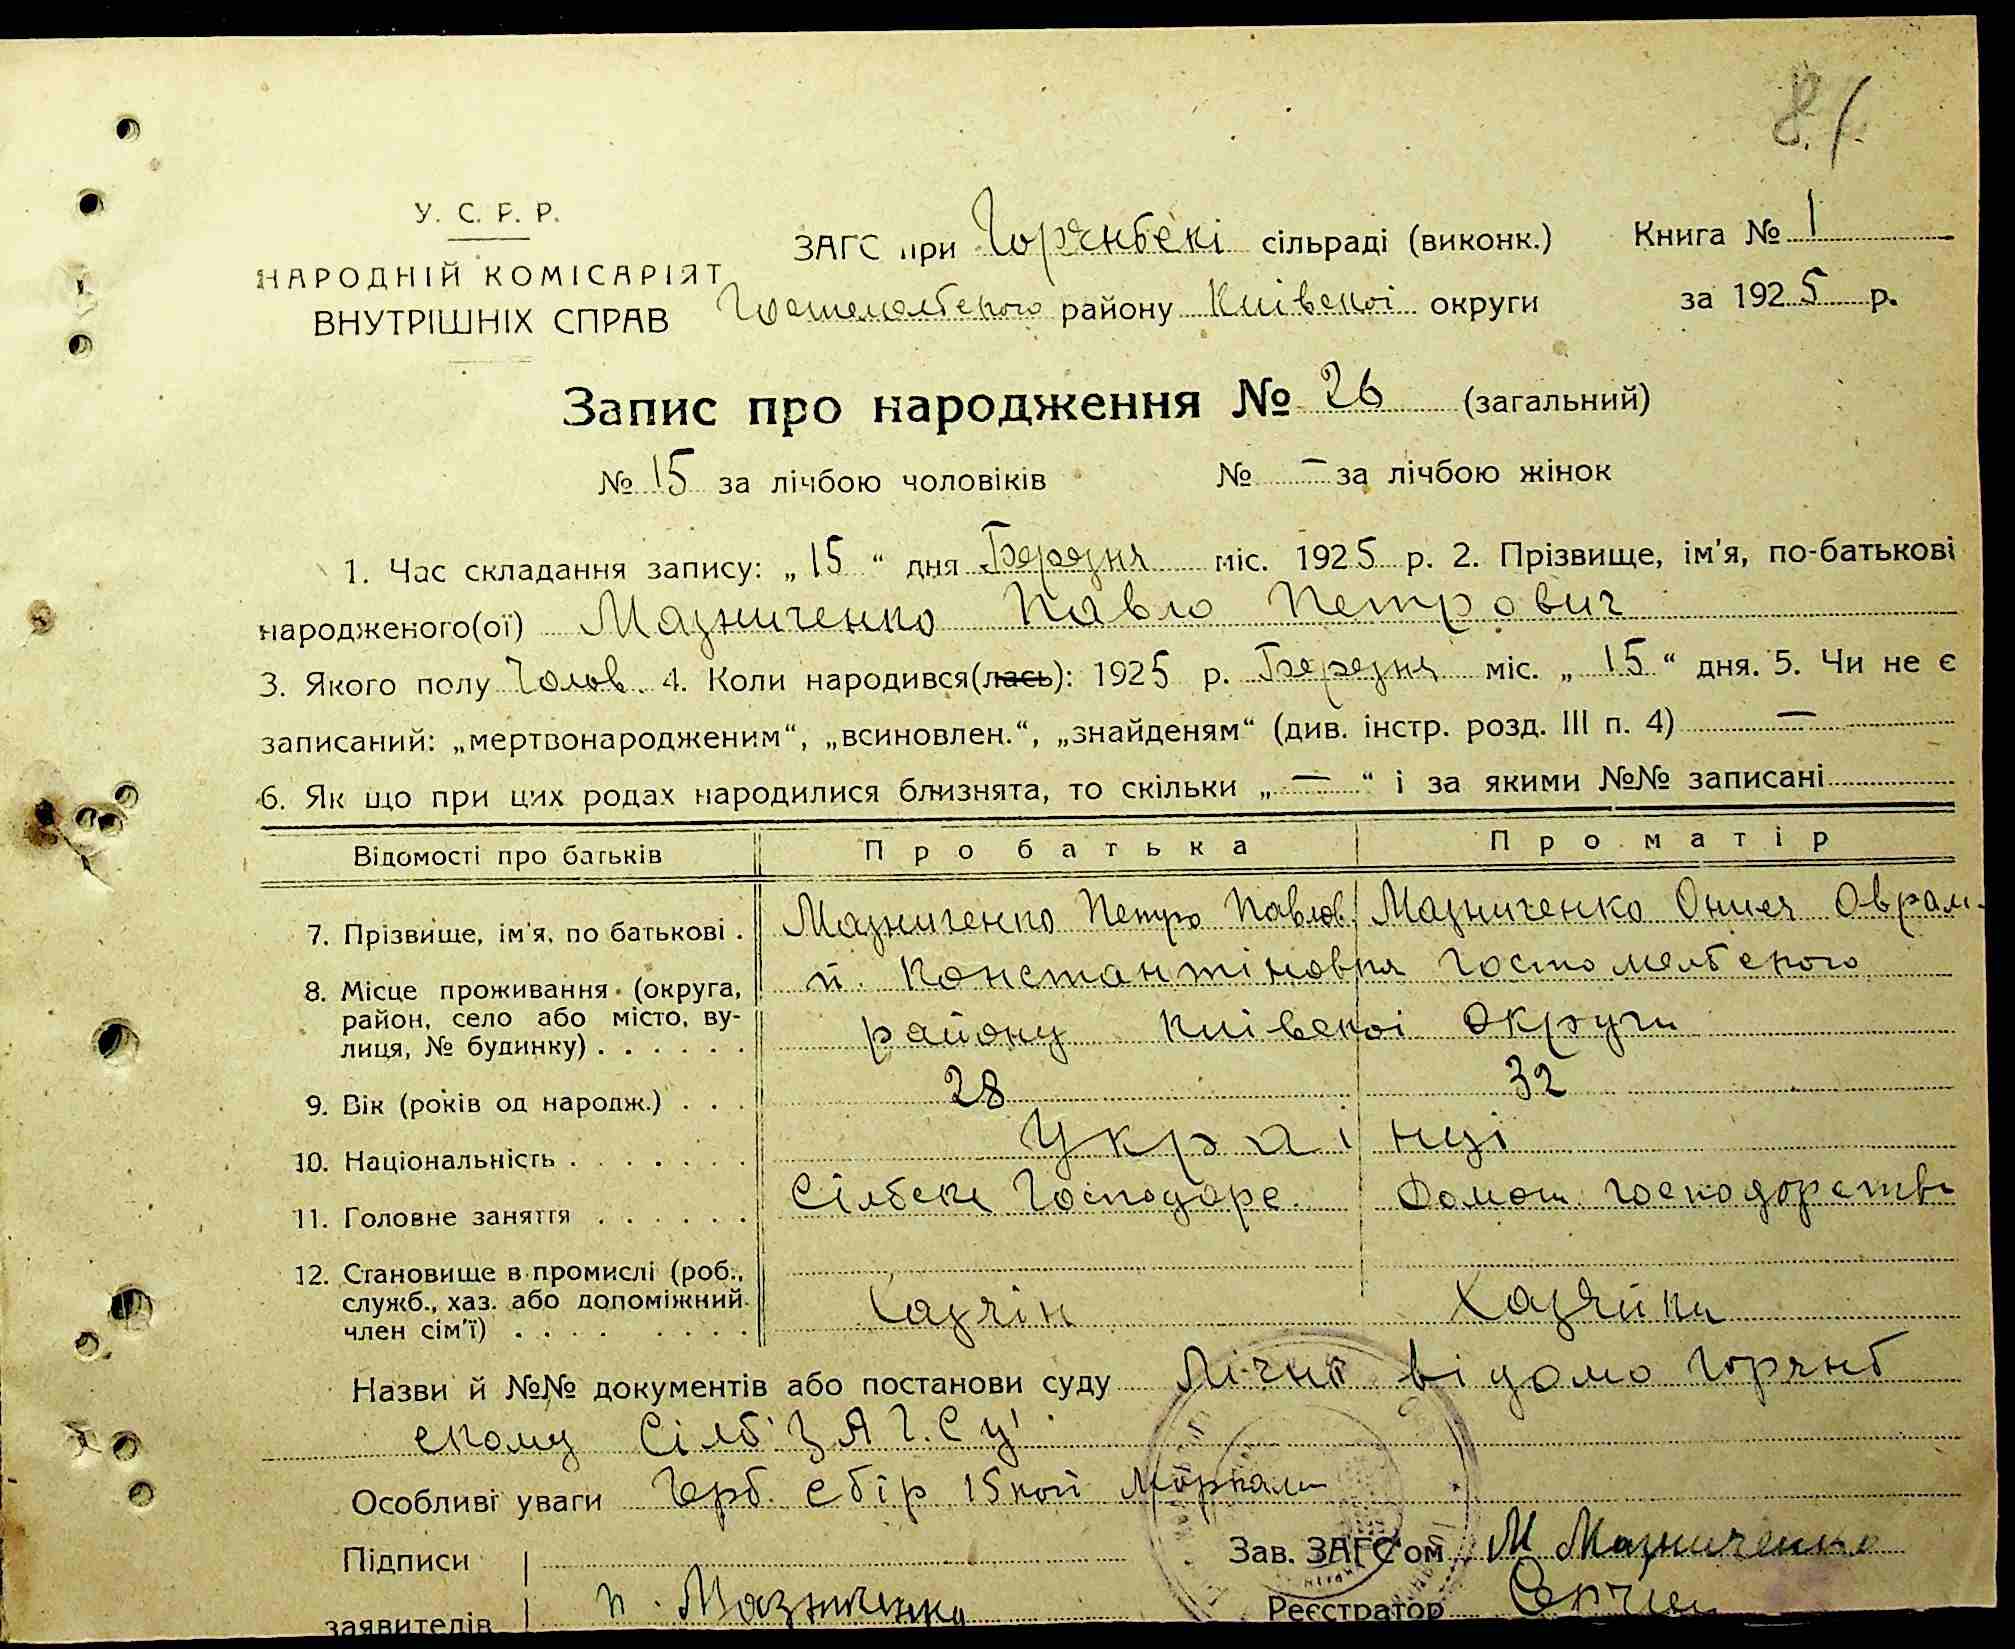 8.
У. С. Р. Р.
ЗАГС при Горянбскі сільраді (виконк.) Книга № 1
НАРОДНІЙ КОМІСАРІЯТ
ВНУТРІШНІХ СПРАВ
Гостомелбского району Київскої округи за 1925 р.
Запис про народження № 26 (загальний)
№ 15 за лічбою чоловіків № — за лічбою жінок
1. Час складання запису: „15“ дня Березня міс. 1925 р. 2. Прізвище, ім'я, по-батькові
народженого(ої) Мазниченко Павло Петрович
3. Якого полу Чолов. 4. Коли народився(лась): 1925 р. Березня міс. „15“ дня. 5. Чи не є
записаний: „мертвонародженим“, „всиновлен.“, „знайденям“ (див. інстр. розд. III п. 4) —
6. Як що при цих родах народилися близнята, то скільки „—“ і за якими №№ записані
Відомості про батьків Про батька Про матір
7. Прізвище, ім'я, по батькові . Мазниченко Петро Павлов. Мазниченко Оврам.
8. Місце проживання (округа, Константіновка Гостомелбского
район, село або місто, ву-
лиця, № будинку) . . . . . . району Київскоі Округи
9. Вік (років од народж.) . . . 28 32
10. Національність . . . . . . . Украінці
11. Головне заняття . . . . . . Сілбске Господарс. Домаш. господарстві
12. Становище в промислі (роб.,
служб., хаз. або допоміжний
член сім'ї) . . . . . . . . Хазяін Хазяйка
Назви й №№ документів або постанови суду Лічно відомо Горянб
скому Сілб ЗАГ.Су
Особливі уваги Герб. сбір 15 коп Марками
Підписи Зав. ЗАГС'ом М Мазниченко
заявителів п. Мазниченко Реєстратор